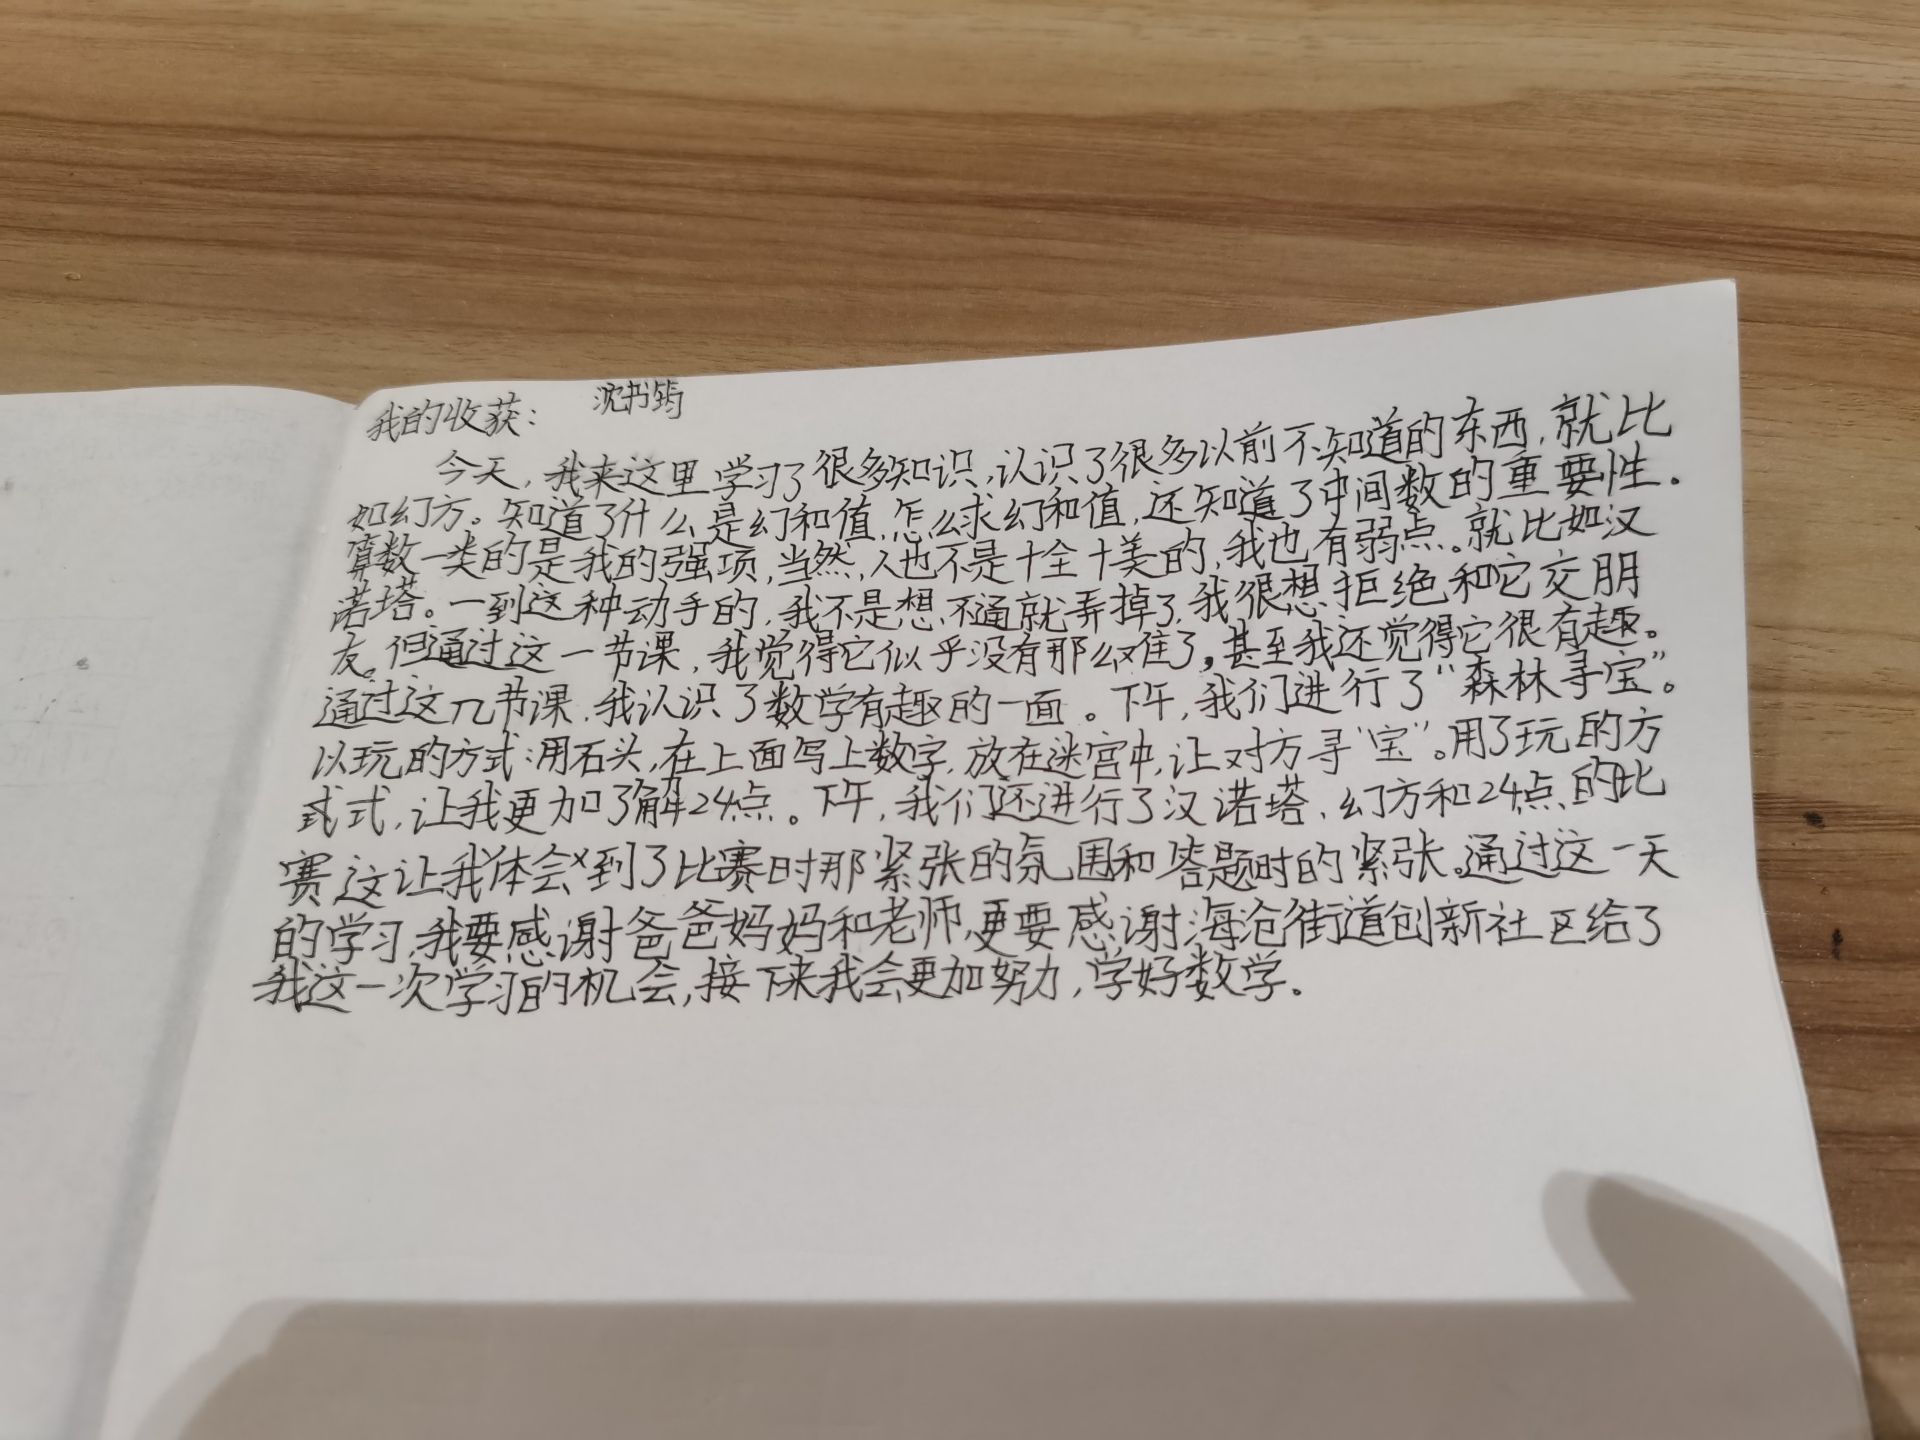 我的收获： 沈书筠
今天，我来这里学习了很多知识，认识了很多以前不知道的东西，就比
如幻方。知道了什么是幻和值，怎么求幻和值，还知道了中间数的重要性。
算数一类的是我的强项，当然，人也不是十全十美的，我也有弱点。就比如汉
诺塔。一到这种动手的，我不是想不通就弄掉了，我很想拒绝和它交朋
友。但通过这一节课，我觉得它似乎没有那么难了，甚至我还觉得它很有趣。
通过这几节课，我认识了数学有趣的一面。下午，我们进行了“森林寻宝”。
以玩的方式：用石头，在上面写上数字，放在迷宫中，让对方寻“宝”。用了玩的方
式式，让我更加了解24点。下午，我们还进行了汉诺塔、幻方和24点的比
赛这让我体会到了比赛时那紧张的氛围和答题时的紧张。通过这一天
的学习，我要感谢爸爸妈妈和老师，更要感谢海沧街道创新社区给了
我这一次学习的机会，接下来我会更加努力，学好数学。